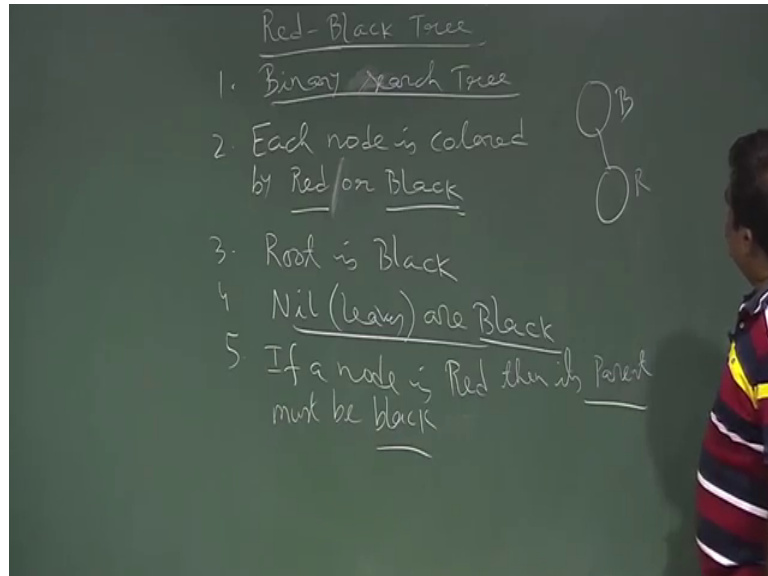 Red-Black Tree
1. Binary Search Tree
2. Each node is colored
by Red/or Black
3. Root is Black
4 Nil (leaves) are Black
5. If a node is Red then its Parent
must be black
B
R